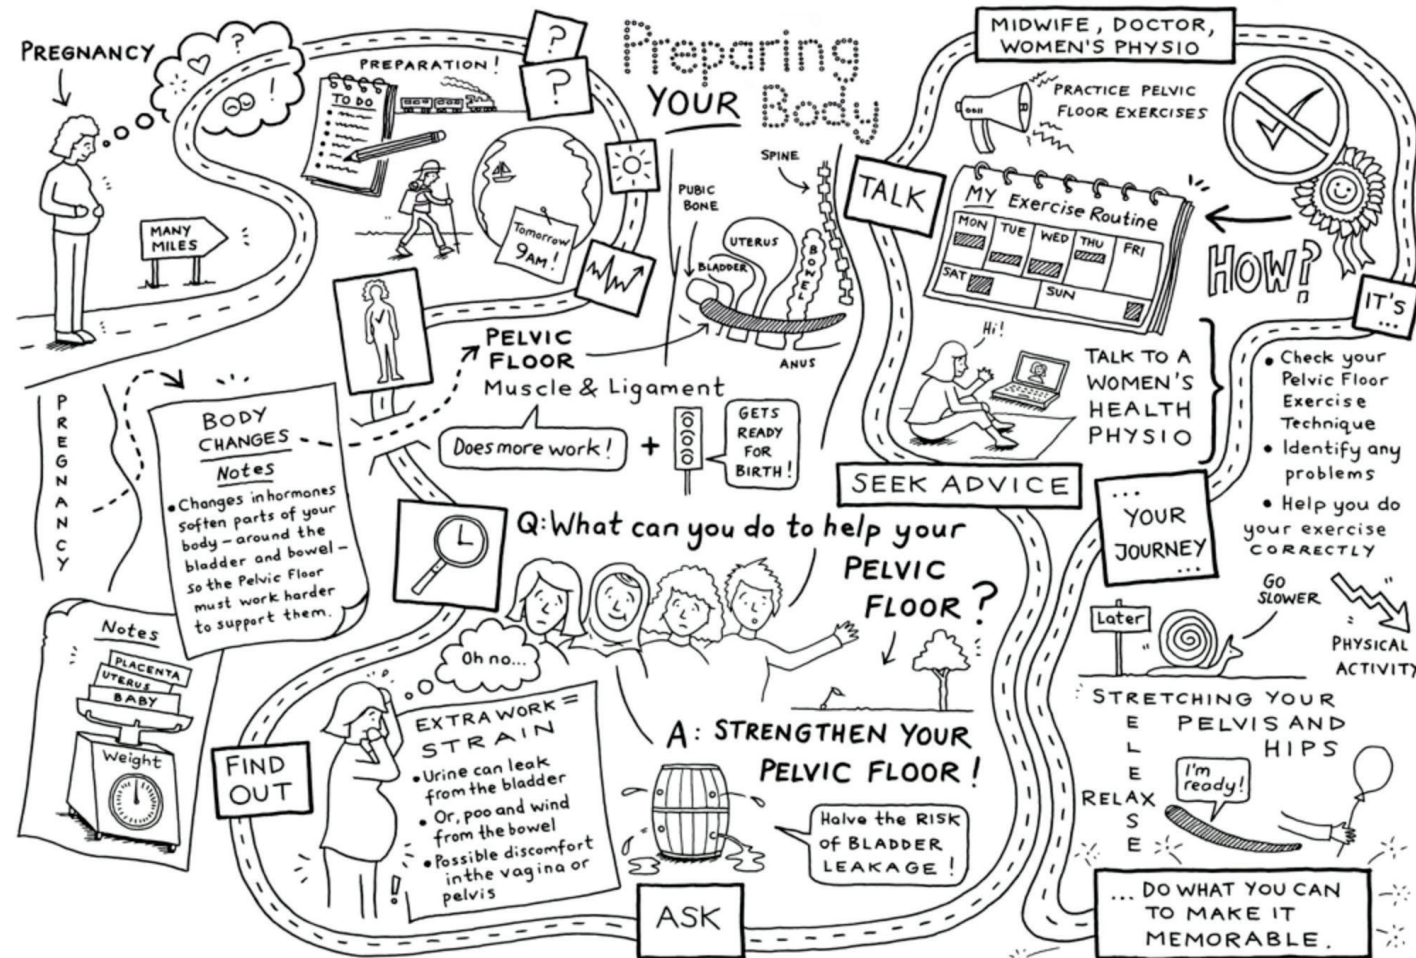 PREGNANCY
?
!
MANY
MILES
PREPARATION!
TO DO
?
?
Tomorrow
9AM!
Preparing
YOUR Body
SPINE
PUBIC
BONE
UTERUS
BLADDER
BOWEL
ANUS
PELVIC
FLOOR
Muscle & Ligament
Does more work!
+
GETS
READY
FOR
BIRTH!
PREGNANCY
BODY
CHANGES
Notes
• Changes in hormones
soften parts of your
body – around the
bladder and bowel –
so the Pelvic Floor
must work harder
to support them.
Notes
PLACENTA
UTERUS
BABY
Weight
FIND
OUT
Oh no...
EXTRA WORK =
STRAIN
• Urine can leak
from the bladder
• Or, poo and wind
from the bowel
• Possible discomfort
in the vagina or
pelvis
!
Q: What can you do to help your
PELVIC
FLOOR?
A: STRENGTHEN YOUR
PELVIC FLOOR!
Halve the RISK
of BLADDER
LEAKAGE!
ASK
SEEK ADVICE
TALK
MIDWIFE, DOCTOR,
WOMEN'S PHYSIO
PRACTICE PELVIC
FLOOR EXERCISES
MY Exercise Routine
MON TUE WED THU FRI
SAT SUN
HOW?
Hi!
TALK TO A
WOMEN'S
HEALTH
PHYSIO
IT'S
...
• Check your
Pelvic Floor
Exercise
Technique
• Identify any
problems
• Help you do
your exercise
CORRECTLY
...
YOUR
JOURNEY
...
Later
GO
SLOWER
PHYSICAL
ACTIVITY
STRETCHING YOUR
PELVIS AND
HIPS
RELEASE
RELAX
I'm
ready!
... DO WHAT YOU CAN
TO MAKE IT
MEMORABLE.